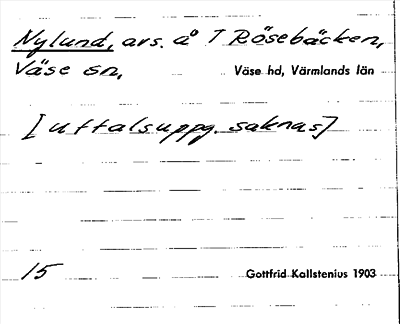 Nylund, avs. å T Rösebäcken,
Väse sn, Väse hd, Värmlands län
[uttalsuppg. saknas]
15 Gottfrid Kallstenius 1903